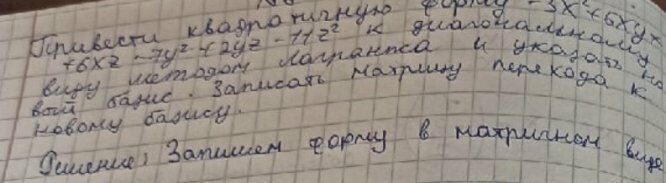 Привести квадратичную форму -3x²+6xy+
+6xz -7y²+2yz -11z² к диагональному
виду методом Лагранжа и указать но
вый базис. Записать матрицу перехода к
новому базису.
Решение; Запишем форму в матричном виде